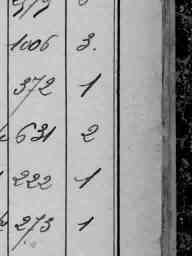 1006 3.
372 1
631 2
222 1
273 1